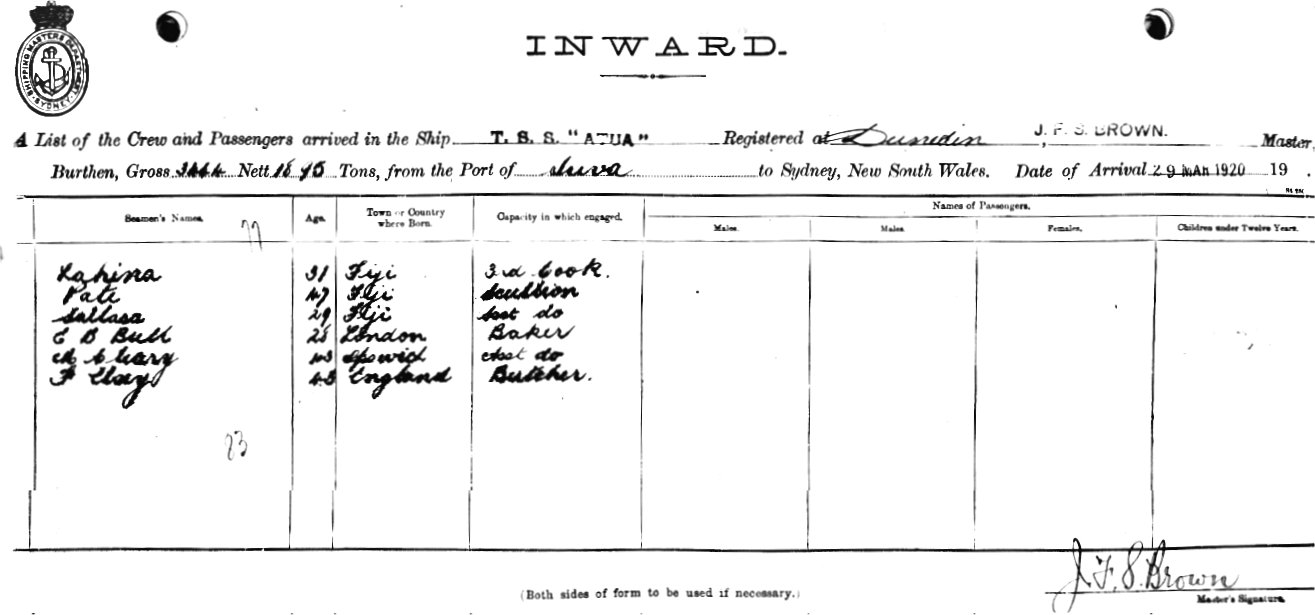 SHIPPING MASTERS DEPARTMENT
SYDNEY
INWARD.
A List of the Crew and Passengers arrived in the Ship T. S. S. "ATUA" Registered at Dunedin, J. F. S. BROWN. Master,
Burthen, Gross 3444 Nett 1895 Tons, from the Port of Suva to Sydney, New South Wales. Date of Arrival 29 MAR 1920 19 .
Seamen's Names. Age. Town or Country where Born. Capacity in which engaged. Names of Passengers.
Males. Males. Females. Children under Twelve Years.
77
31 Fiji 3rd Cook.
Pate 47 Fiji Scullion
29 Fiji Asst do
E B Bull 28 London Baker
43 Ipswich Asst do
F 43 England Butcher.
23
(Both sides of form to be used if necessary.)
J. F. S. Brown
Master's Signature.